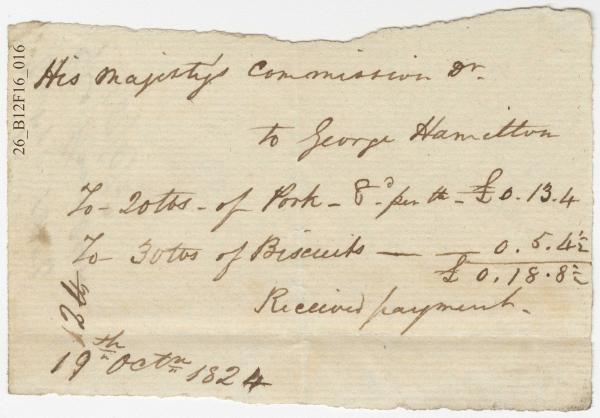 26_B12F16_016
His Majestys Commission Dr.
to George Hamilton
To - 20 lbs - of Pork - 8d. per lb - £ 0. 13. 4
To 30 lbs of Biscuits — — 0. 5. 4½
£ 0. 18. 8½
Received payment.
19th Octr 1824